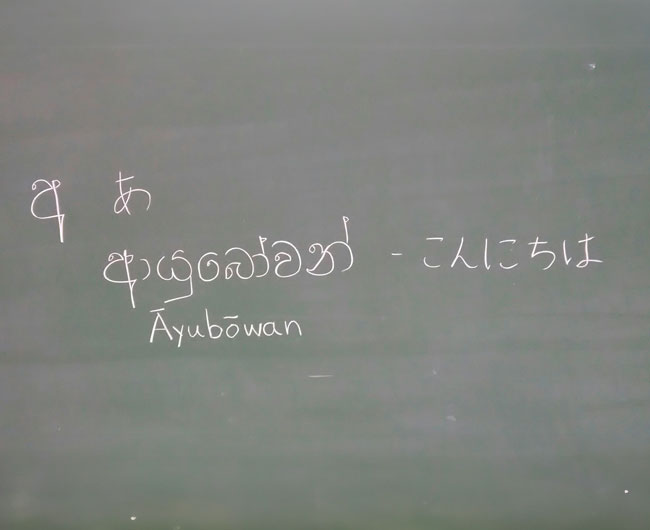 අ あ
ආයුබෝවන් - こんにちは
Āyubōwan